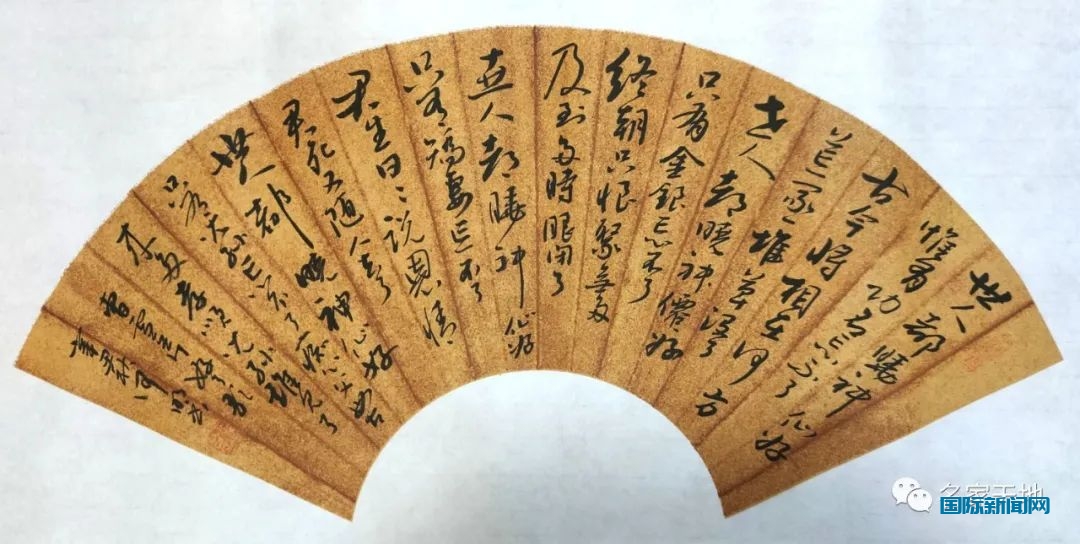 世人都晓神仙好
惟有功名忘不了
古今将相在何方
荒冢一堆草没了
世人都晓神僊好
只有金銀忘不了
终朝只恨聚無多
及到多時眼闭了
世人都晓神仙好
只有娇妻忘不了
君生日〻说恩情
君死又随人去了
世人都晓神仙好
只有児孙忘不了痴心父母
来多孝顺児孙谁见了
曹雪芹好了歌
辛丑秋
名家天地
国际新闻网